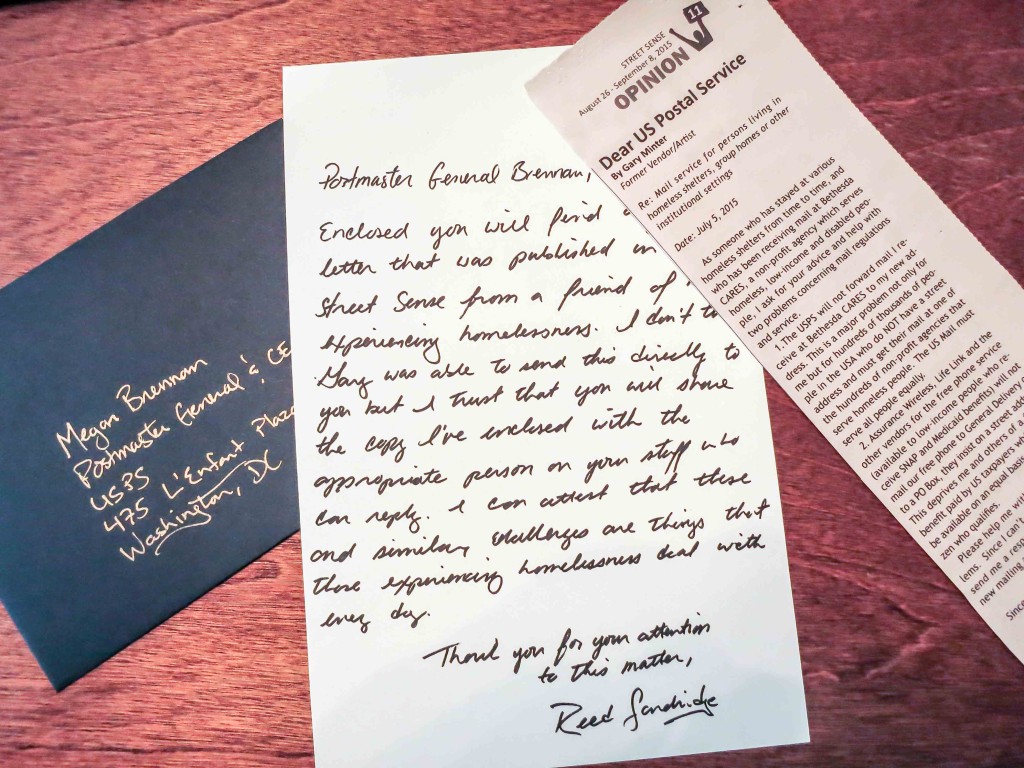 Megan Brennan
Postmaster General & CE
USPS
475 L'Enfant Plaza
Washington, DC
Postmaster General Brennan,
Enclosed you will find
letter that was published in
Street Sense from a friend of
experiencing homelessness. I don't
Gary was able to send this directly to
you but I trust that you will share
the copy I've enclosed with the
appropriate person on your staff who
can reply. I can attest that these
and similar challenges are things that
those experiencing homelessness deal with
every day.
Thank you for your attention
to this matter,
Reed Sandridge
11
STREET SENSE
August 26 - September 8, 2015
OPINION
Dear US Postal Service
By Gary Minter
Former Vendor/Artist
Re: Mail service for persons living in
homeless shelters, group homes or other
institutional settings
Date: July 5, 2015
As someone who has stayed at various
homeless shelters from time to time, and
who has been receiving mail at Bethesda
CARES, a non-profit agency which serves
homeless, low-income and disabled peo-
ple, I ask for your advice and help with
two problems concerning mail regulations
and service.
1. The USPS will not forward mail I re-
ceive at Bethesda CARES to my new ad-
dress. This is a major problem not only for
me but for hundreds of thousands of peo-
ple in the USA who do NOT have a street
address and must get their mail at one of
the hundreds of non-profit agencies that
serve homeless people. The US Mail must
serve all people equally.
2. Assurance Wireless, Life Link and the
other vendors for the free phone service
(available to low-income people who re-
ceive SNAP and Medicaid benefits) will not
mail our free phone to General Delivery
to a PO Box, they insist on a street add
This deprives me and others of a
benefit paid by US taxpayers wh
be available on an equal basis
zen who qualifies.
Please help me wi
lems. Since I can't
send me a res
new mailing
Since